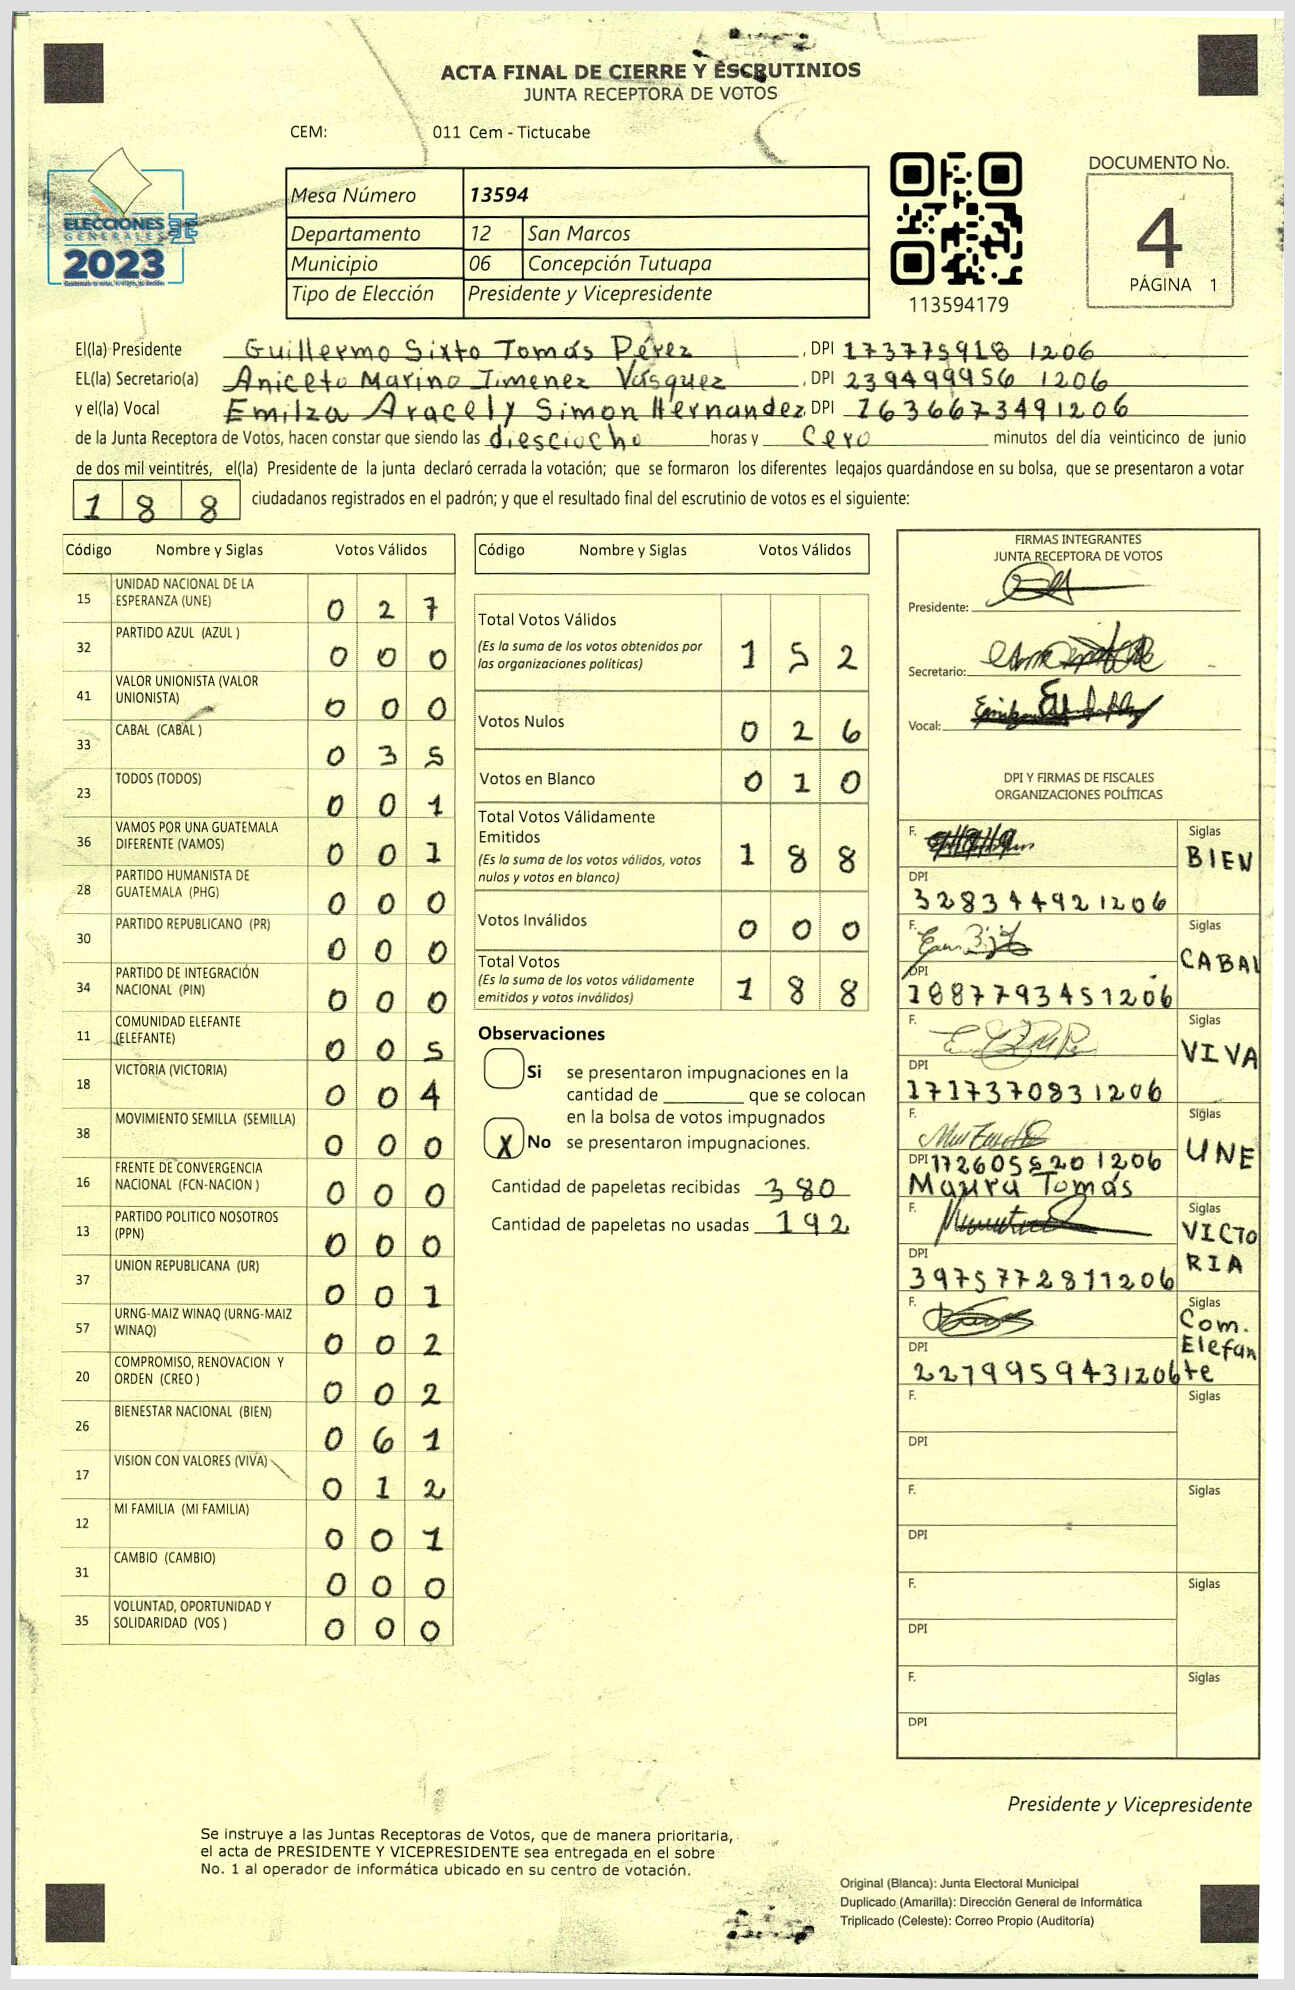 ACTA FINAL DE CIERRE Y ESCRUTINIOS
JUNTA RECEPTORA DE VOTOS
CEM: 011 Cem - Tictucabe
ELECCIONES
GENERALES
2023
Mesa Número 13594
Departamento 12 San Marcos
Municipio 06 Concepción Tutuapa
Tipo de Elección Presidente y Vicepresidente
113594179
DOCUMENTO No.
4
PÁGINA 1
El(la) Presidente Guillermo Sixto Tomás Pérez , DPI 173775918 1206
EL(la) Secretario(a) Aniceto Marino Jimenez Vásquez , DPI 239499956 1206
y el(la) Vocal Emilza Aracely Simon Hernandez, DPI 1636673491206
de la Junta Receptora de Votos, hacen constar que siendo las diesciocho horas y Cero minutos del día veinticinco de junio
de dos mil veintitrés, el(la) Presidente de la junta declaró cerrada la votación; que se formaron los diferentes legajos guardándose en su bolsa, que se presentaron a votar
188 ciudadanos registrados en el padrón; y que el resultado final del escrutinio de votos es el siguiente:
Código Nombre y Siglas Votos Válidos
15 UNIDAD NACIONAL DE LA ESPERANZA (UNE) 0 2 7
32 PARTIDO AZUL (AZUL ) 0 0 0
41 VALOR UNIONISTA (VALOR UNIONISTA) 0 0 0
33 CABAL (CABAL ) 0 3 5
23 TODOS (TODOS) 0 0 1
36 VAMOS POR UNA GUATEMALA DIFERENTE (VAMOS) 0 0 1
28 PARTIDO HUMANISTA DE GUATEMALA (PHG) 0 0 0
30 PARTIDO REPUBLICANO (PR) 0 0 0
34 PARTIDO DE INTEGRACIÓN NACIONAL (PIN) 0 0 0
11 COMUNIDAD ELEFANTE (ELEFANTE) 0 0 5
18 VICTORIA (VICTORIA) 0 0 4
38 MOVIMIENTO SEMILLA (SEMILLA) 0 0 0
16 FRENTE DE CONVERGENCIA NACIONAL (FCN-NACION ) 0 0 0
13 PARTIDO POLITICO NOSOTROS (PPN) 0 0 0
37 UNION REPUBLICANA (UR) 0 0 1
57 URNG-MAIZ WINAQ (URNG-MAIZ WINAQ) 0 0 2
20 COMPROMISO, RENOVACION Y ORDEN (CREO ) 0 0 2
26 BIENESTAR NACIONAL (BIEN) 0 6 1
17 VISION CON VALORES (VIVA) 0 1 2
12 MI FAMILIA (MI FAMILIA) 0 0 1
31 CAMBIO (CAMBIO) 0 0 0
35 VOLUNTAD, OPORTUNIDAD Y SOLIDARIDAD (VOS ) 0 0 0
Código Nombre y Siglas Votos Válidos
Total Votos Válidos 1 5 2
(Es la suma de los votos obtenidos por
las organizaciones políticas)
Votos Nulos 0 2 6
Votos en Blanco 0 1 0
Total Votos Válidamente
Emitidos 1 8 8
(Es la suma de los votos válidos, votos
nulos y votos en blanco)
Votos Inválidos 0 0 0
Total Votos 1 8 8
(Es la suma de los votos válidamente
emitidos y votos inválidos)
Observaciones
Si se presentaron impugnaciones en la
cantidad de ________ que se colocan
en la bolsa de votos impugnados
X No se presentaron impugnaciones.
Cantidad de papeletas recibidas 380
Cantidad de papeletas no usadas 192
FIRMAS INTEGRANTES
JUNTA RECEPTORA DE VOTOS
Presidente:
Secretario:
Vocal:
DPI Y FIRMAS DE FISCALES
ORGANIZACIONES POLÍTICAS
F. Siglas BIEN
DPI 328344921206
F. Siglas CABAL
DPI 1887793451206
F. Siglas VIVA
DPI 1717370831206
F. Siglas UNE
DPI 172605520 1206
Maura Tomás
F. Siglas VICTORIA
DPI 3975772811206
F. Siglas Com. Elefante
DPI 2279959431206
F. Siglas
DPI
F. Siglas
DPI
F. Siglas
DPI
F. Siglas
DPI
Presidente y Vicepresidente
Se instruye a las Juntas Receptoras de Votos, que de manera prioritaria,
el acta de PRESIDENTE Y VICEPRESIDENTE sea entregada en el sobre
No. 1 al operador de informática ubicado en su centro de votación.
Original (Blanca): Junta Electoral Municipal
Duplicado (Amarilla): Dirección General de Informática
Triplicado (Celeste): Correo Propio (Auditoría)